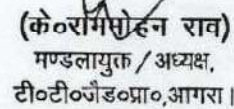 (के०राममोहन राव)
मण्डलायुक्त / अध्यक्ष,
टी०टी०जैड०प्रा०,आगरा।